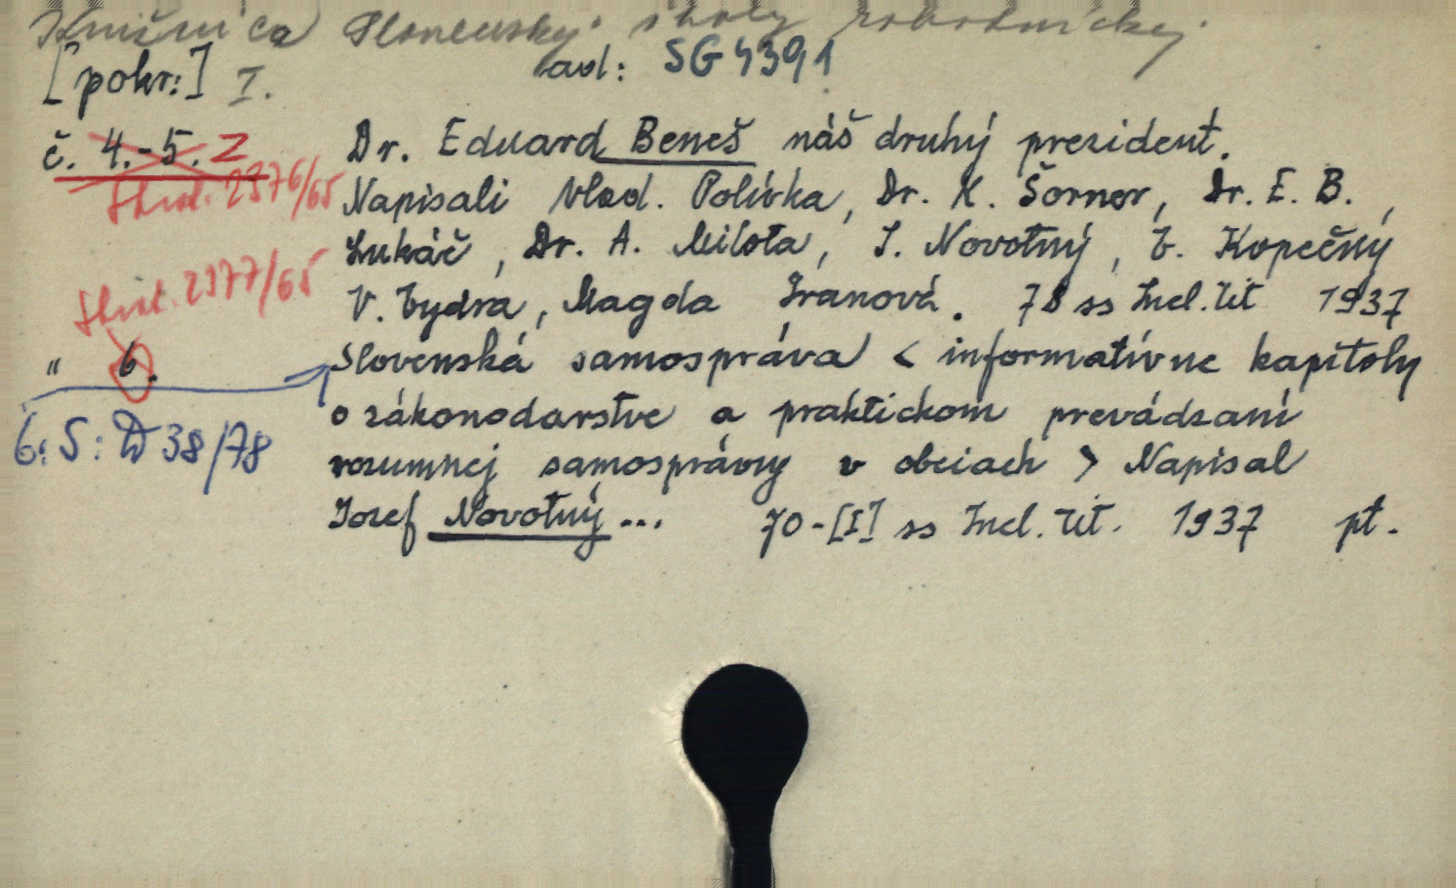 Knižnica Slovenskej školy robotníckej
[pokr:] I. ad: SG 4391
č. 4.-5. Z Dr. Eduard Beneš náš druhý prezident.
Skrat. 2376/65 Napísali Vlad. Polívka, Dr. K. Šorner, Dr. E. B.,
Lukáč, Dr. A. Milota, J. Novotný, E. Kopečný
Skrat. 2377/65 V. Vydra, Magda Ivanová. 78 ss Incl. tit 1937
" 6. Slovenská samospráva < informatívne kapitoly
o zákonodarstve a praktickom prevádzaní
6: S: D 38/78 rozumnej samosprávy v obciach > Napísal
Jozef Novotný ... 70-[I] ss Incl. tit. 1937 pt.